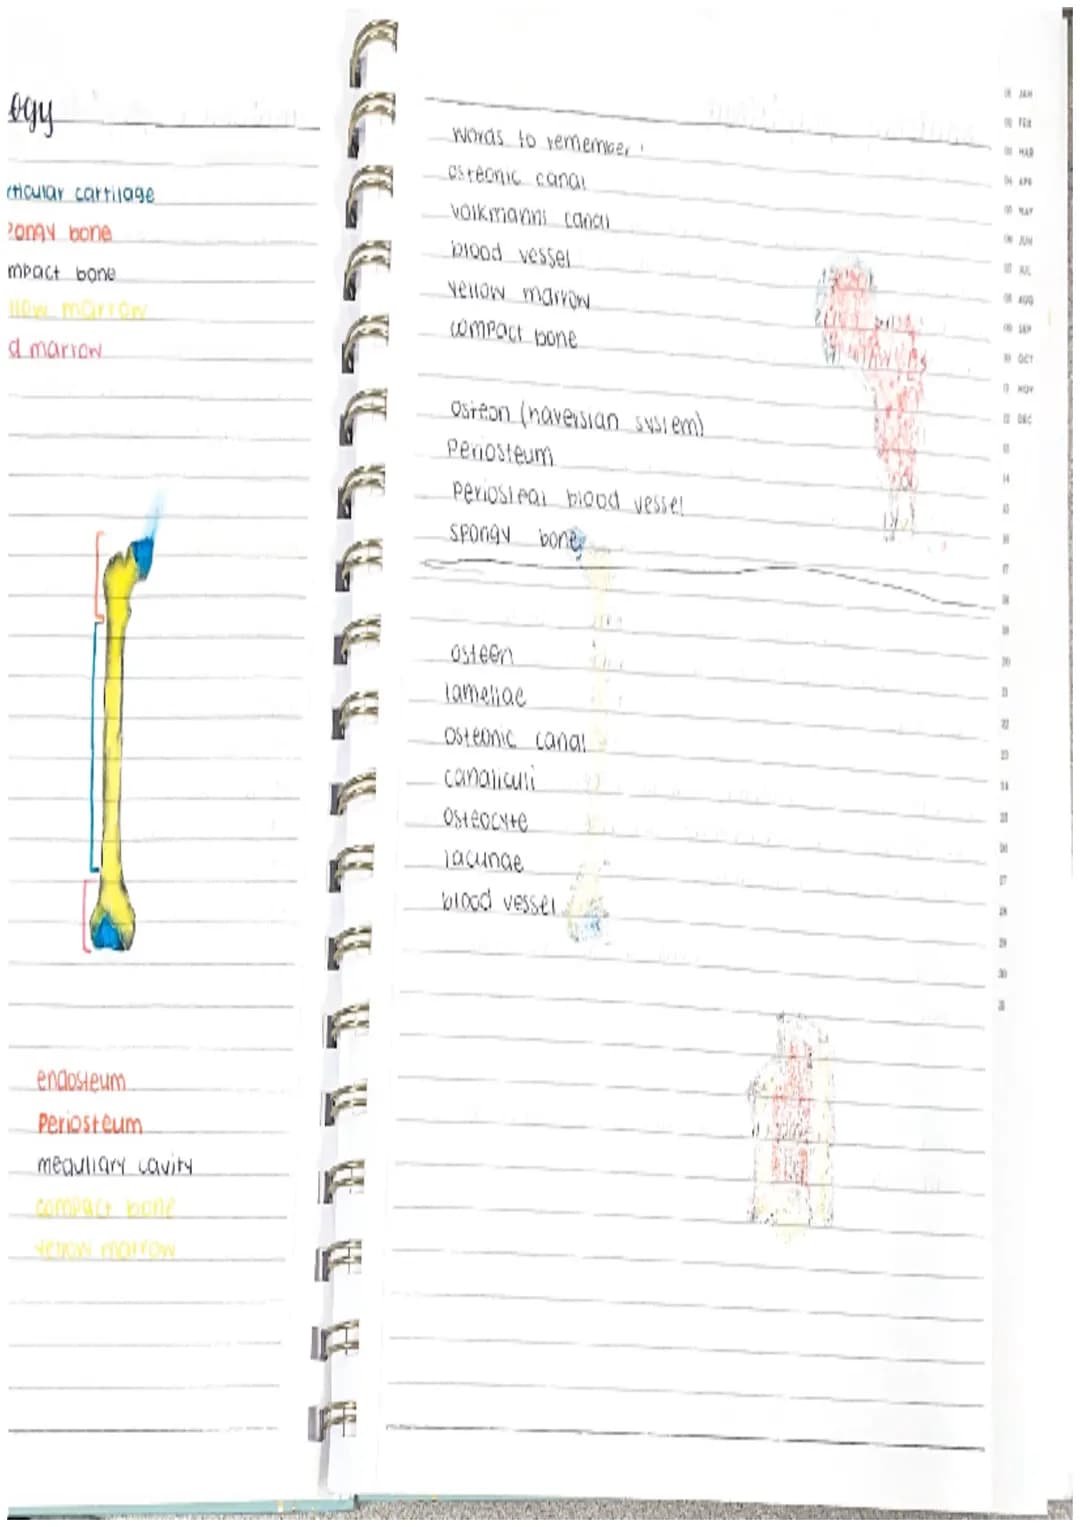 ogy
rticular cartilage
pongy bone
mpact bone
llow marrow
d marrow
endosteum
Periosteum
medullary cavity
compact bone
yellow marrow
words to remember:
osteonic canal
volkmanns canal
blood vessel
yellow marrow
compact bone
osteon (haversian system)
Periosteum
Periosteal blood vessel
spongy bone
osteon
lamellae
osteonic canal
canaliculi
osteocyte
lacunae
blood vessel
JAN
FEB
MAR
APR
MAY
JUN
JUL
AUG
SEP
OCT
NOV
DEC